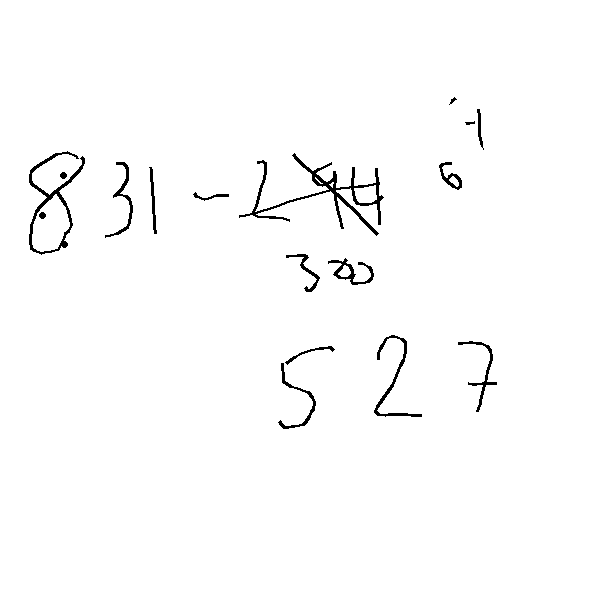 831 - 294
-1
6
300
527